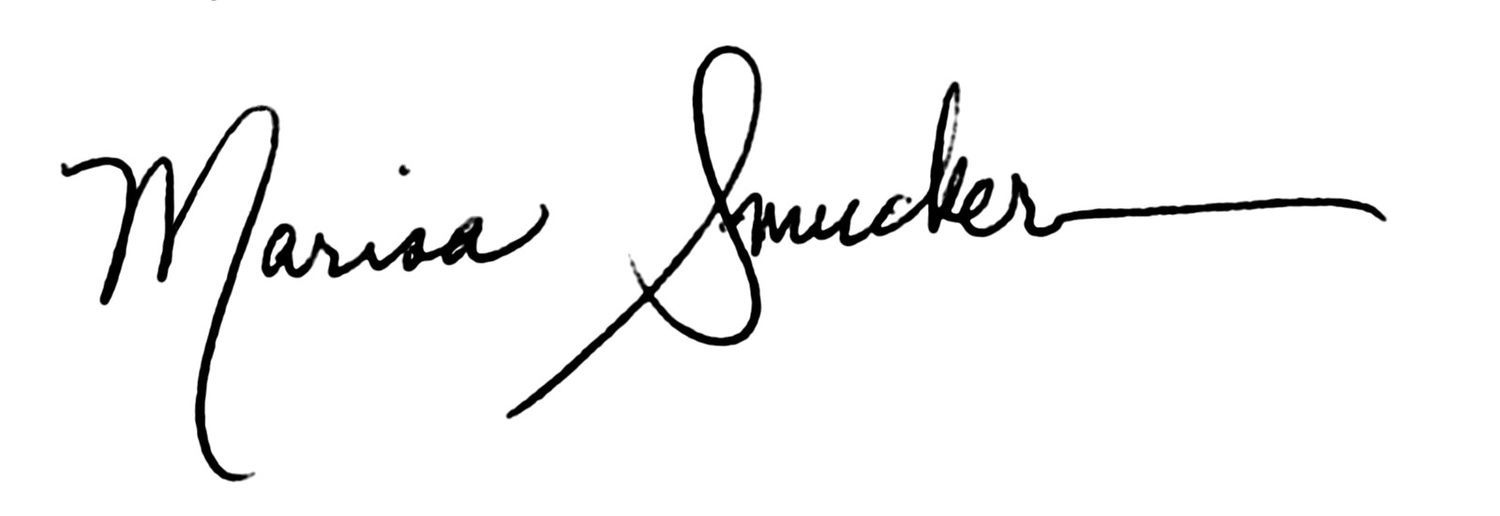 Marisa Smucker